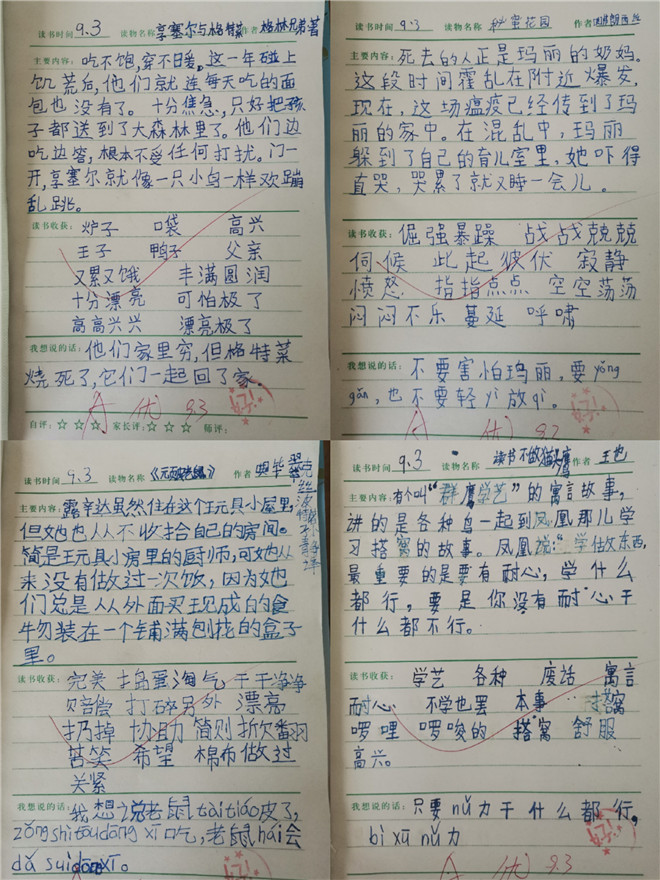 读书时间 9.3 读物名称 享塞尔与格特菜 作者 格林兄弟著
主要内容: 吃不饱,穿不日爰。这一年碰上
饥荒后,他们就连每天吃的面
包也没有了。十分焦急,只好把孩
子都送到了大森林里了。他们边
吃边答,根本不受任何打扰。门一
开,享塞尔就像一只小鸟一样欢蹦
乱跳。
读书收获: 炉子 口袋 高兴
王子 鸭子 父亲
又累又饿 丰满圆润
十分漂亮 可怕极了
高高兴兴 漂亮极了
我想说的话: 他们家里穷,但格特菜
烧死了,它们一起回了家.
自评: ☆☆☆ 家长评: ☆☆☆ 师评:
A 优 9.3
读书时间 9.3 读物名称 秘蜜花园 作者
主要内容: 死去的人正是玛丽的奶妈。
这段时间霍乱在附近爆发,
现在,这场瘟疫已经传到了玛
丽的家中。在混乱中,玛丽
躲到了自己的育儿室里,她吓得
直哭,哭累了就又睡一会儿。
读书收获: 倔强暴躁 战战兢兢
伺候 此起彼伏 寂静
愤怒 指指点点 空空荡荡
闷闷不乐 蔓延 呼啸
我想说的话: 不要害怕玛丽,要yǒng
gǎn,也不要轻yì放qì.
A 优 9.3
读书时间 9.3 读物名称 作者
主要内容: 露辛达虽然住在这个玩具小屋里,
但她也从不收拾自己的房间。
简是玩具小房里的厨师,可她从
来没有做过一次饭,因为她
们总是从外面买现成的食
物装在一个铺满刨花的盒子
里。
读书收获: 完美 捣蛋淘气 干干净净
赔偿 打碎另外 漂亮
扔掉 协助 简则 折欠翻羽
苦笑 希望 棉布 做过
关紧
我想说的话: 我想说老鼠tàitiáo皮了,
zǒngshìtōudōng xī吃,老鼠hái会
dǎ suìdōngxī。
A 优 9.3
读书时间 9.3 读物名称 读书不做猫头鹰 作者 王也
主要内容: 有个叫“群鹰学艺”的寓言故事,
讲的是各种鸟一起到凤凰那儿学
习搭窝的故事。凤凰说:“学做东西,
最重要的是要有耐心,学什么
都行,要是你没有耐心干
什么都不行。
读书收获: 学艺 各种 废话 寓言
耐心 不学也罢 本事 搭窝
啰哩啰唆的 搭窝 舒服
高兴。
我想说的话: 只要nǔ力干什么都行,
bì xū nǔ力
A 优 9.3